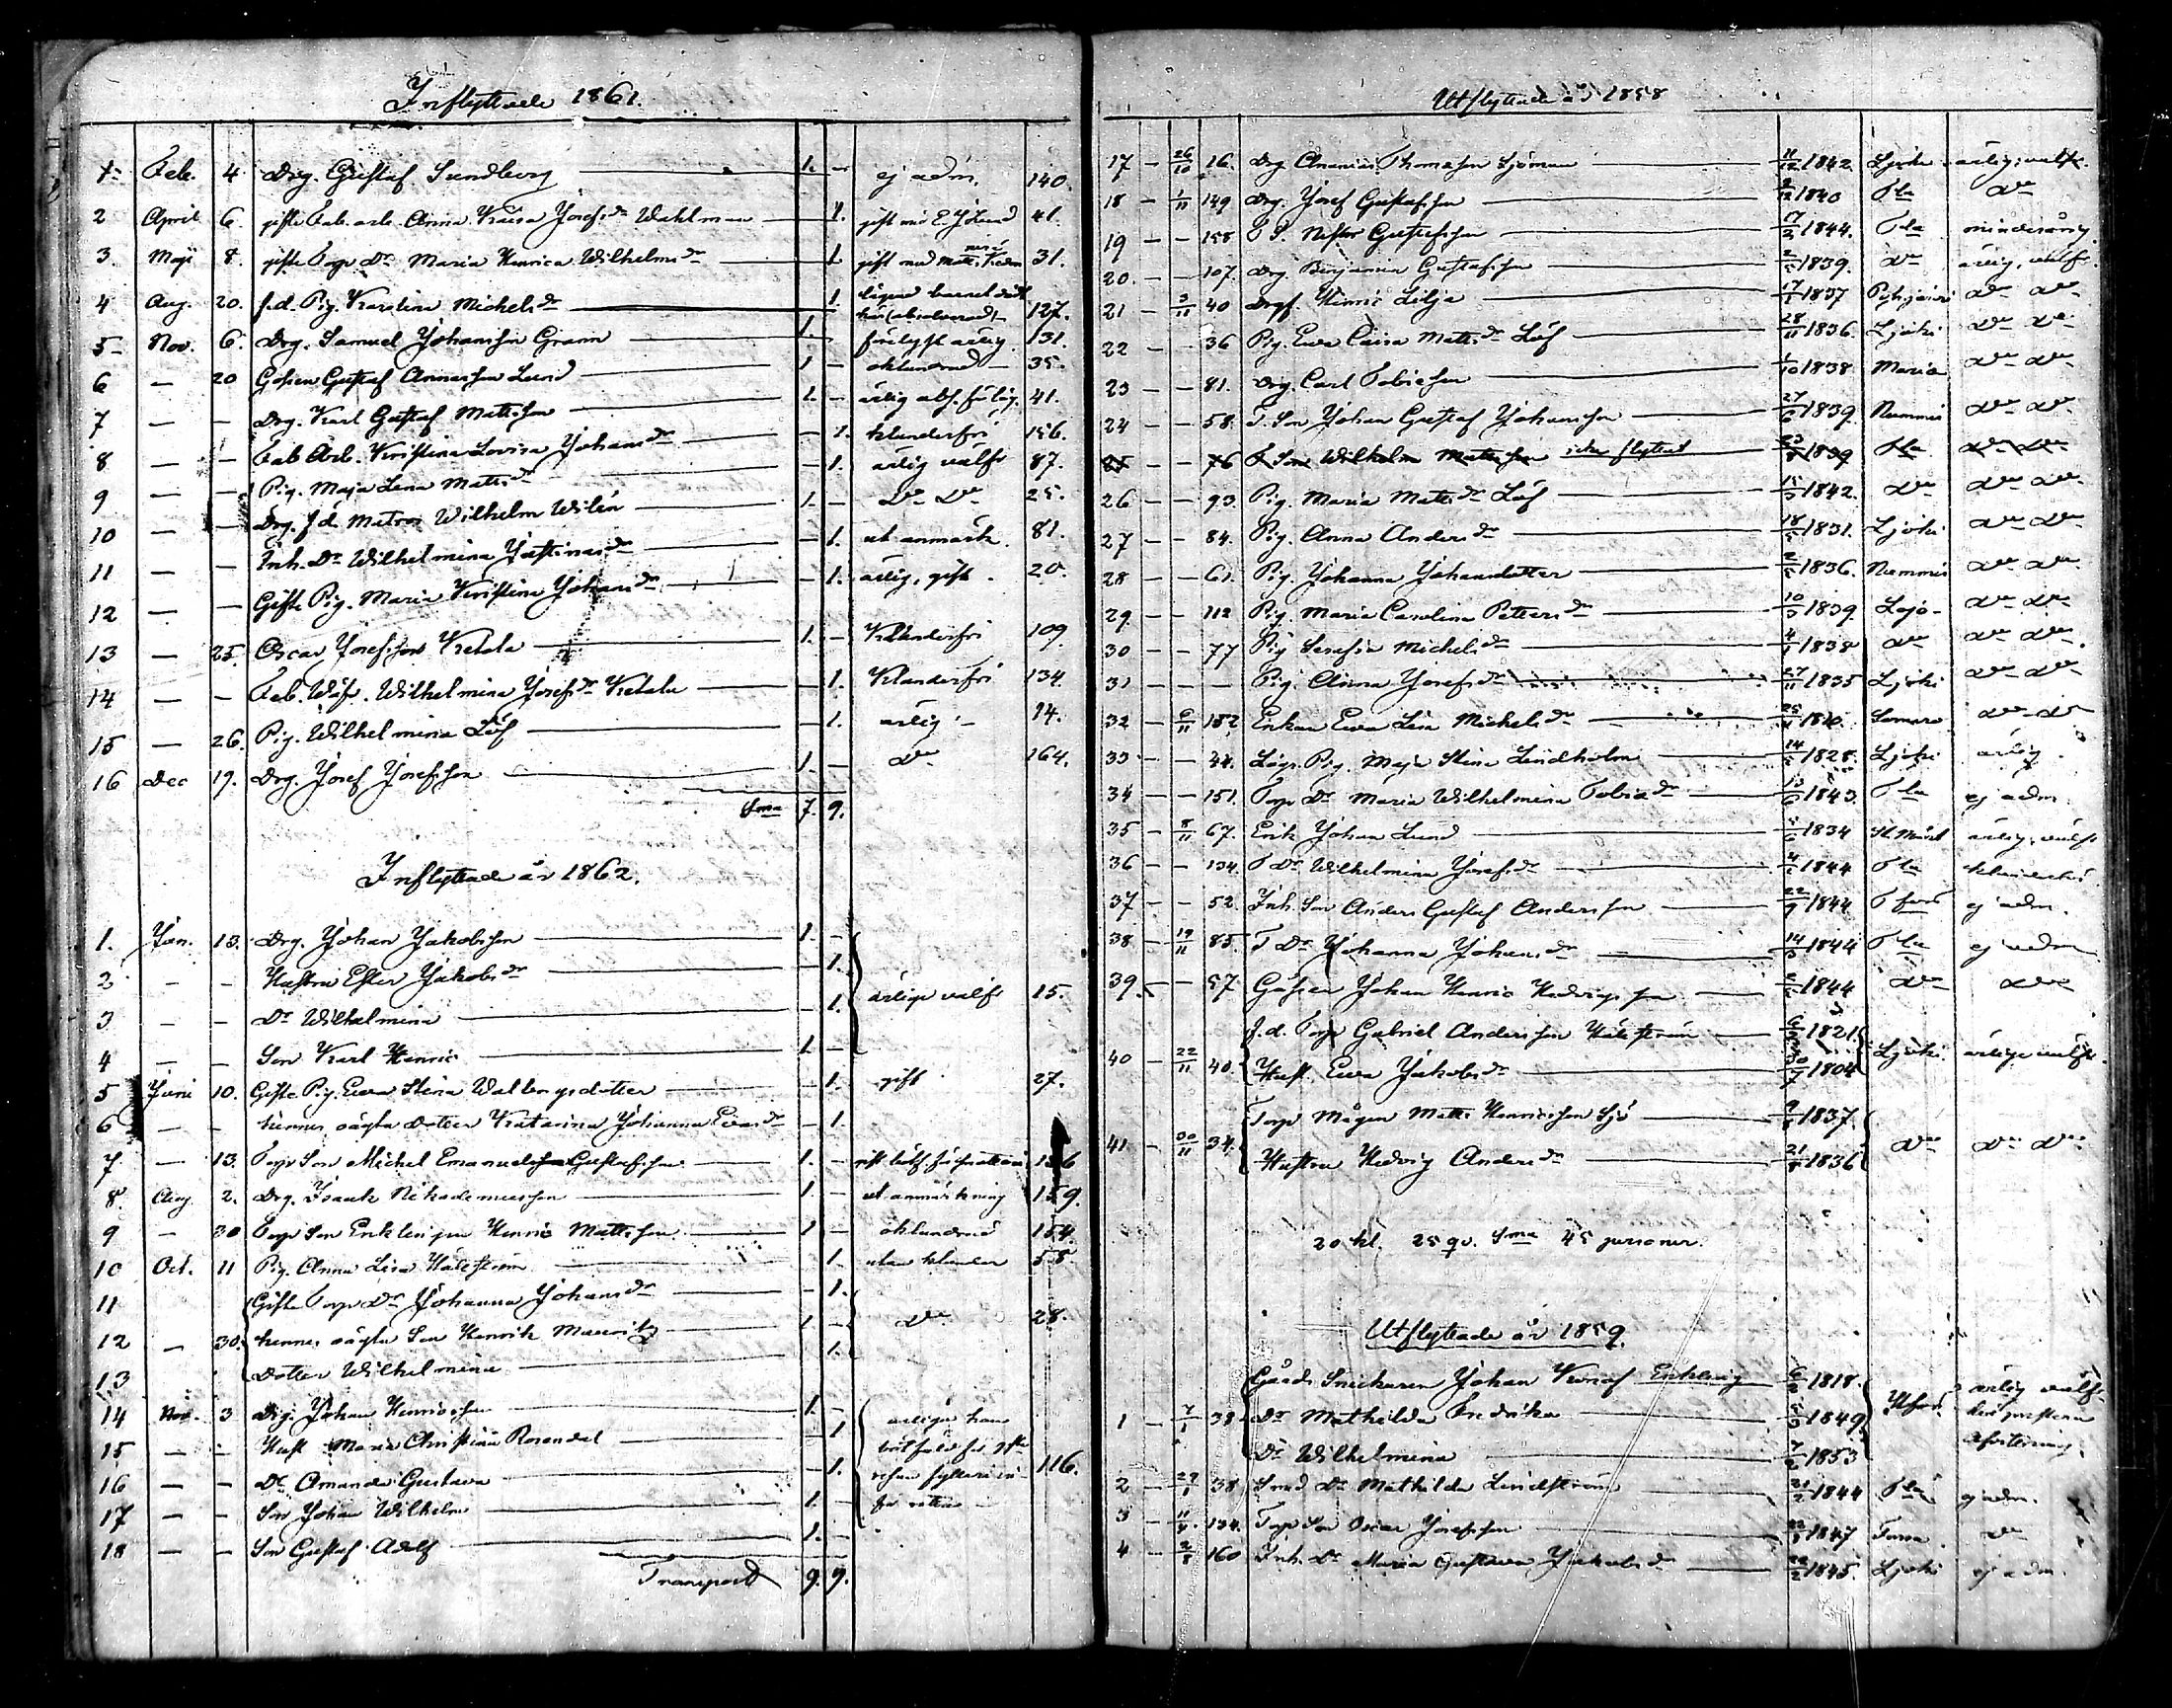 Inflyttade 1861.
1. Feb. 4 Drg. Gustaf Sundberg 1. — ej adm. 140.
2 April 6. gifte Fab. arb. Anna Kaisa Josefsdr Wahlman — 1. gift med E. J. Lund 41.
3. Maji 8. gifte Torp Dr Maria Henrica Wilhelmsdr — 1 gift med Matts 31.
4 Aug. 20. f.d. Pig. Karolina Michelsdr — 1. 127.
5 Nov. 6. Drg. Samuel Johansson Grann 1. — förlyst ärlig. 131.
6 — 20 Gossen Gustaf Annasson Lund 1 — oklandrad 35.
7 — — Drg. Karl Gustaf Mattsson 1. — ärlig 41.
8 — — Fab Arb. Kristina Lovisa Johansdr — 1. klanderfri 156.
9 — — Pig. Maja Lena Mattsdr — 1. ärlig välfr 87.
10 — — Drg. f.d. Matros Wilhelm Wilén 1. — Do Do 25.
11 — — Inh. Dr Wilhelmina Justinasdr — 1. ut anmärk. 81.
12 — — Gifte Pig. Maria Kristina Johansdr — 1. ärlig, gift. 20.
13 — 25. Oscar Josefsson Ketala 1. — Klanderfri 109
14 — — Fab. Wäf. Wilhelmina Josefsdr Ketala — 1. Klanderfri 134.
15 — 26. Pig. Wilhelmina Löf — 1. ärlig 14.
16 Dec 19. Drg. Josef Josefsson 1. — Do 164.
Sma 7. 9.
Inflyttade år 1862.
1. Jan. 13. Drg. Johan Jakobsson 1. —
2 — — Hustru Ester Jakobsdr — 1. ärliga välfr 15.
3 — — Dr Wilhelmina — 1.
4 — — Son Karl Henric 1. —
5 Juni 10. Gifte Pig. Eva Stina Walbergsdotter — 1. gift 27.
6 — — hennes oägta dotter Katarina Johanna Evasdr — 1.
7 — 13. Torp Son Michel Emanuel Gustafsson 1. — 136
8. Aug. 2. Drg. Isaak Nikodemusson 1. — ut anmärkning 159.
9 — 30 Torp Son Enklingen Henric Mattsson 1 — oklandrad 154.
10 Oct. 11 Pig. Anna Lisa Hällström — 1. utan klander 58.
11 Gifte Torp Dr Johanna Johansdr — 1.
12 — 30. hennes oägta Son Henrik Mauritz 1. — Do 28.
13 Dotter Wilhelmina — 1.
14 Nov. 3 Drg. Johan Henricsson 1. — ärliga han
15 — — Hust Maria Christina Rosendal — 1
16 — — Dr Amanda Gustava — 1. 116.
17 — — Son Johan Wilhelm 1. —
18 — — Son Gustaf Adolf 1. —
Transport 9. 9.
Utflyttade år 1858
17 — 26/10 16. Drg Ananias Thomasson Sjöman 11/12 1842. Ljoki ärlig, välfr.
18 — 1/11 149 Drg. Josef Gustafsson 2/12 1840 Fla Do
19 — — 158 T S. Nestor Gustafsson 17/2 1844. Fla minderårig
20. — — 107. Drg. Benjamin Gustafsson 1839. Do ärlig, välfr.
21 — 3/11 40 Drg. Henric Lilja 17/1 1837 Pyhäjärvi Do Do
22 — — 36 Pig. Eva Caisa Mattsdr Löf 28/11 1836. Ljoki Do Do
23 — — 81. Drg. Carl Tobiasson 1/10 1838 Maria Do Do
24 — — 58. T. Son Johan Gustaf Johansson 27/6 1839. Nummis Do Do
25 — — 76 T. Son Wilhelm Mattsson icke flyttad 1839 Fla Do Do
26 — — 93. Pig. Maria Mattsdr Löf 15/3 1842. Do Do Do
27 — — 84. Pig. Anna Andersdr 18/5 1831. Ljoki Do Do
28 — — 61. Pig. Johanna Johansdotter 1836. Nummis Do Do
29 — — 112 Pig. Maria Carolina Pettersdr 10/3 1839. Lojo Do Do
30 — — 77 Pig Serafia Michelsdr 4/1 1838 Do Do Do
31 — — Pig. Anna Josefsdr 27/11 1835 Ljoki Do Do
32 — 6/11 152. Enkan Eva Lisa Michelsdr 1810. Somero Do Do
33 — — Lägr. Pig. Maja Stina Lindholm 14/2 1828. Ljoki ärlig.
34 — — 151. Torp Dr Maria Wilhelmina Tobiasdr 13/6 1843. Fla ej adm
35 — 8/11 67. Erik Johan Lund 1834 St. Mårt. ärlig, välfr
36 — — 134. T Dr Wilhelmina Josefsdr 4/2 1844 Fla
37 — — 52. Inh. Son Anders Gustaf Andersson 22/9 1844 Tfors ej adm.
38 — 19/11 85 T Dr Johanna Johansdr 14/3 1844 Fla ej adm
39. — — 57 Gossen Johan Henric Hedvigsson 1844 Do Do
40 — 22/11 40 f.d. Torp Gabriel Andersson Hällström 1821. Ljoki ärliga välfr.
Hust. Eva Jakobsdr 1804
41 — 30/11 34. Torp Mågen Matts Henricsson Sjö 1837. Do Do Do
Hustru Hedvig Andersdr 21/8 1836
20 kl. 25 qv. Sma 45 personer.
Utflyttade år 1859.
1 — 7/1 38 Gårds Snickaren Johan Kristof Enkling 6/2 1818. ärlig välfr.
Dr Mathilda Fredrika 1849
Dr Wilhelmina 7/2 1853
2 — 38 Smed Dr Mathilda Lindström 21/2 1844 Fla ej adm.
3 — 134. Torp Son Oscar Josefsson 1847 Do
4 — 2/8 160 Inh. Dr Maria Gustava Jakobsdr 22/2 1845. Ljoki ej adm.